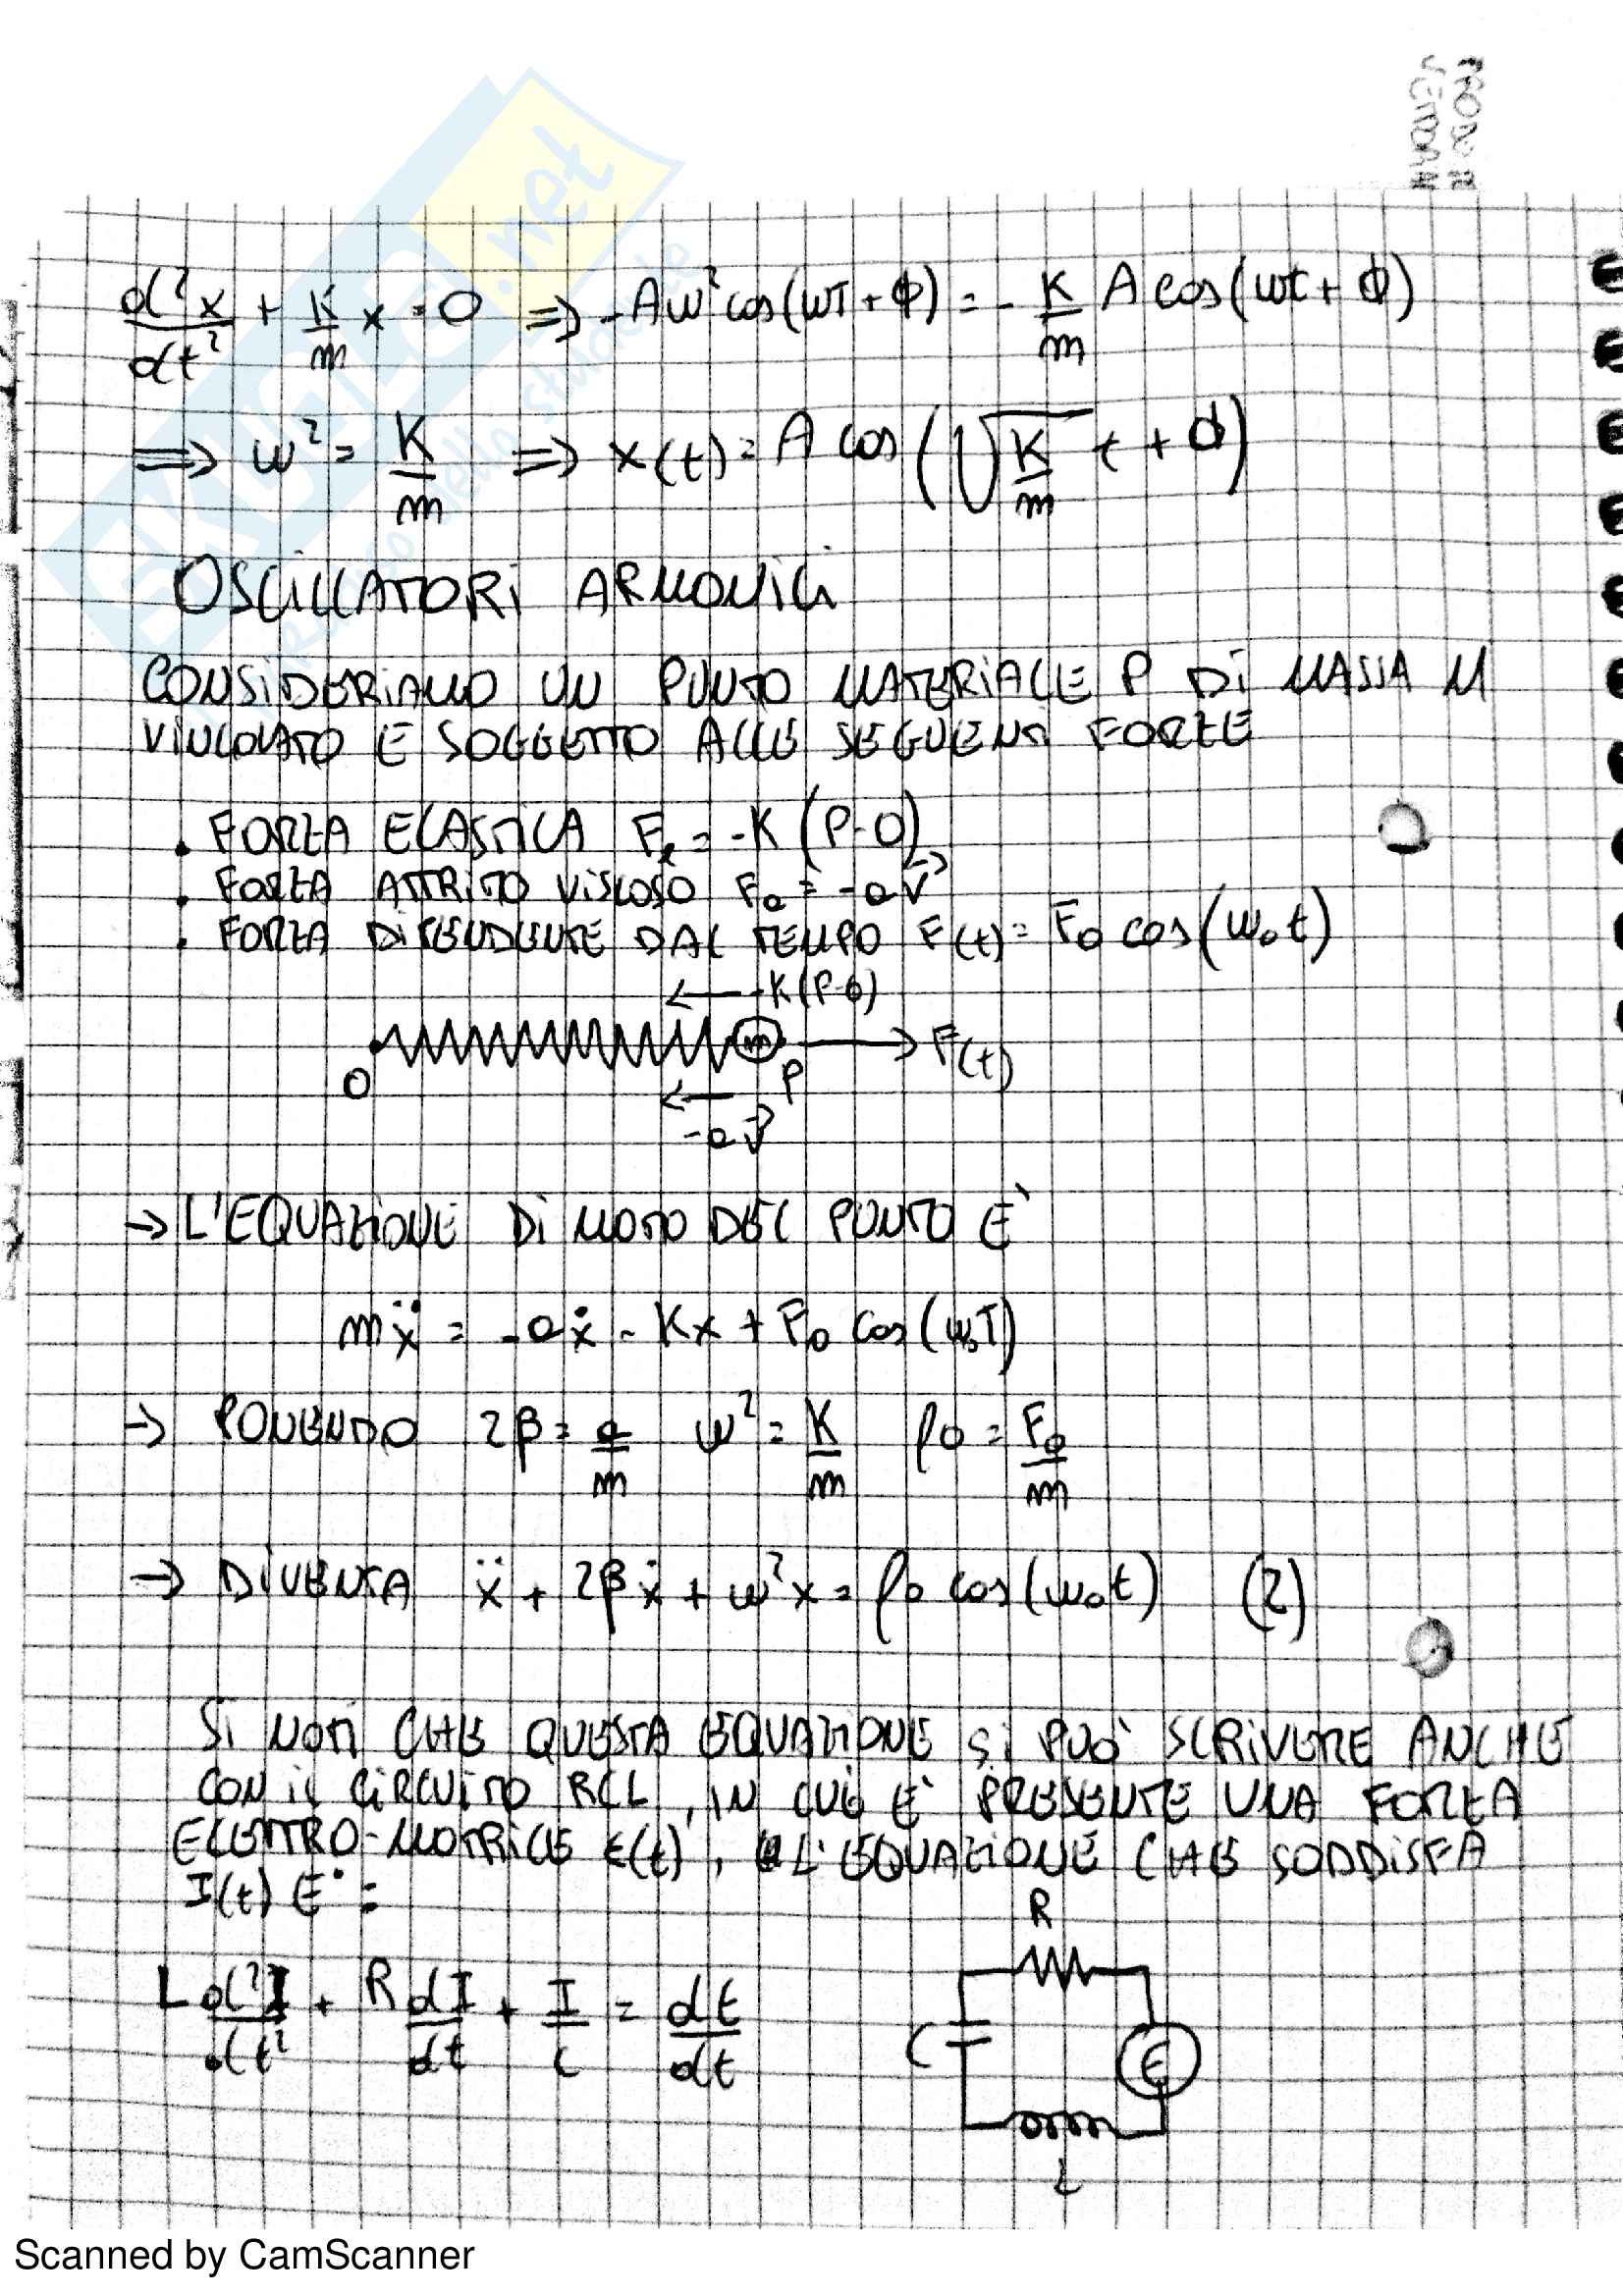 d²x/dt² + K/m x = 0 ⇒ -Aω² cos(ωT + ϕ) = - K/m A cos(ωt + ϕ)
⇒ ω² = K/m ⇒ x(t) = A cos(√(K/m) t + ϕ)
OSCILLATORI ARMONICI
CONSIDERIAMO UN PUNTO MATERIALE P DI MASSA M
VINCOLATO E SOGGETTO ALLE SEGUENTI FORZE
. FORZA ELASTICA Fe = -K (P-O)
. FORZA ATTRITO VISCOSO Fa = -a v⃗
. FORZA DIPENDENTE DAL TEMPO F(t) = F0 cos(ω0 t)
-K(P-O)
m
F(t)
O
P
-a v⃗
→ L'EQUAZIONE DI MOTO DEL PUNTO E'
mẍ = -aẋ - Kx + F0 cos(ω0T)
→ PONENDO 2β = a/m ω² = K/m f0 = F0/m
→ DIVENTA ẍ + 2βẋ + ω²x = f0 cos(ω0t) (2)
SI NOTI CHE QUESTA EQUAZIONE SI PUO' SCRIVERE ANCHE
CON IL CIRCUITO RCL, IN CUI E' PRESENTE UNA FORZA
ELETTRO-MOTRICE ε(t), L'EQUAZIONE CHE SODDISFA
I(t) E' :
R
L d²I/dt² + R dI/dt + I/C = dε/dt
C
ε
L
Scanned by CamScanner